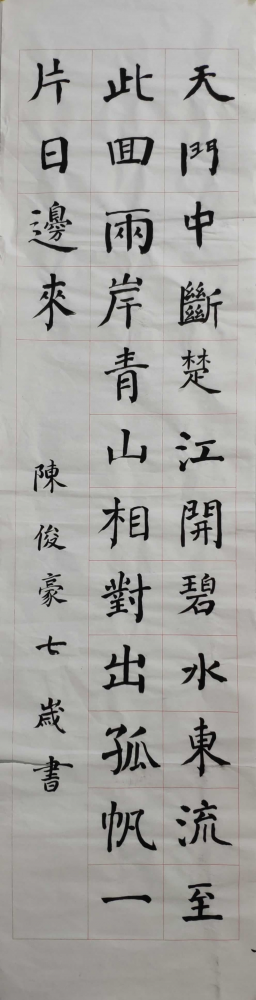 天門中斷楚江開碧水東流至
此回兩岸青山相對出孤帆一
片日邊來
陳俊豪七歲書